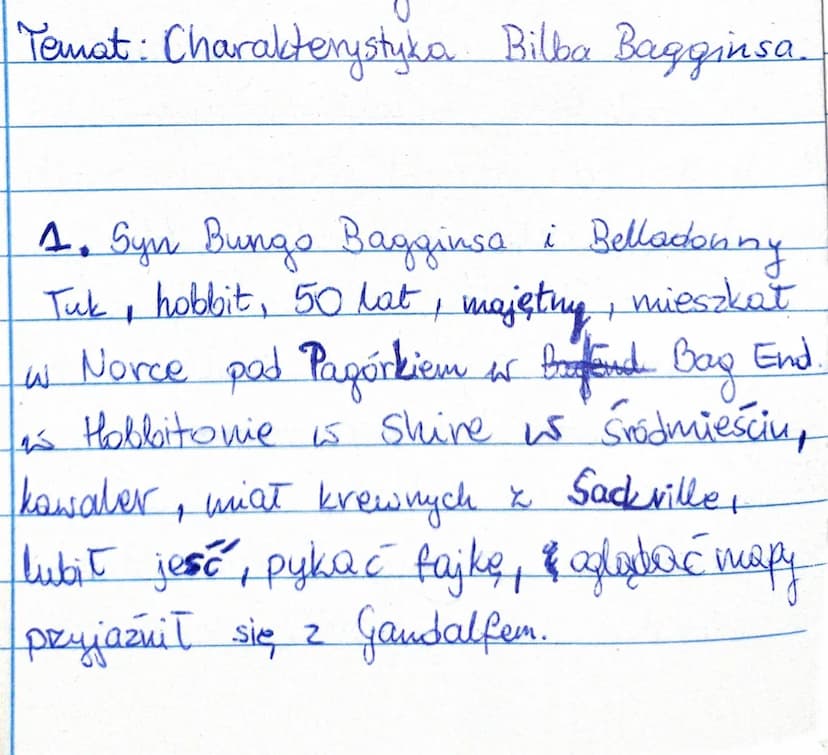 Temat: Charakterystyka Bilba Bagginsa.
1. Syn Bungo Bagginsa i Belladonny
Tuk, hobbit, 50 lat, majętny, mieszkał
w Norce pod Pagórkiem w Bag End
w Hobbitonie w Shire w Śródmieściu,
kawaler, miał krewnych z Sackville,
lubił jeść, pykać fajkę, oglądać mapy
przyjaźnił się z Gandalfem.